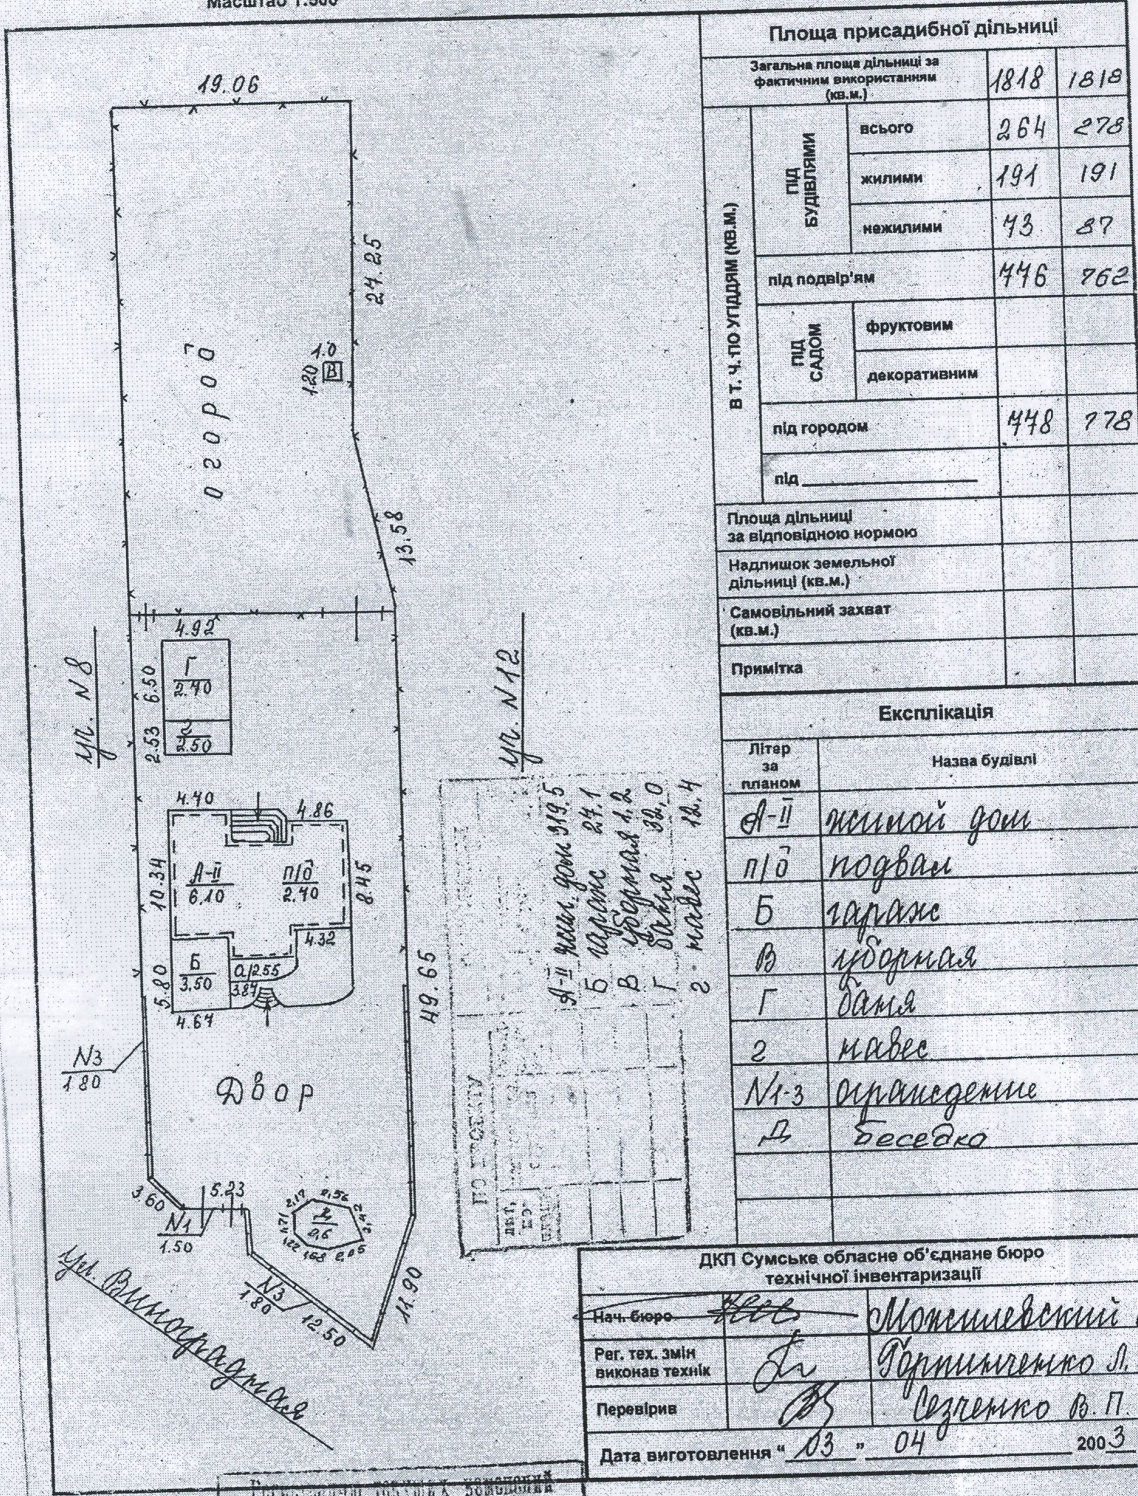 Масштаб 1:500
19.06
24.25
1.0
1.20
В
огород
13.58
4.92
Г
2.70
6.50
2.53
г
2.50
уч. N 8
уч. N 12
4.70
4.86
10.34
А-II
6.10
п/д
2.70
8.45
4.32
Б
3.50
а/2.55
3.87
5.80
4.67
49.65
N3
1.80
Двор
3.60
5.23
N1
1.50
2.17
2.56
1.71
Д
2.42
2.05
N3
1.80
12.50
11.90
ул. Виноградная
А-II жил. дом 319.5
Б гараж 27.1
В уборная 1,2
Г баня 32,0
г навес 12.4
ПО ПРОЕКТУ
Площа присадибної дільниці
Загальна площа дільниці за
фактичним використанням
(кв.м.)
1818 1818
В Т. Ч. ПО УГІДДЯМ (КВ.М.)
ПІД
БУДІВЛЯМИ
всього 264 278
жилими 191 191
нежилими 73 87
під подвір'ям 776 762
ПІД
САДОМ
фруктовим
декоративним
під городом 778 778
під
Площа дільниці
за відповідною нормою
Надлишок земельної
дільниці (кв.м.)
Самовільний захват
(кв.м.)
Примітка
Експлікація
Літер
за
планом
Назва будівлі
А-II жилой дом
п/д подвал
Б гараж
В уборная
Г баня
г навес
N1-3 ограждение
Д беседка
ДКП Сумське обласне об'єднане бюро
технічної інвентаризації
Нач. бюро Можилевский
Рег. тех. змін
виконав технік
Л.
Перевірив В. П.
Дата виготовлення " 03 " 04 2003